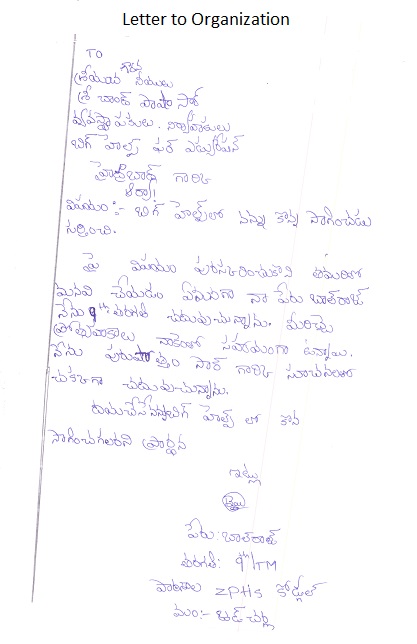 Letter to Organization
TO
గౌరవ
శ్రీయుత నీయులు
శ్రీ చాంద్ పాషా సార్
వ్యవస్థాపకులు. నిర్వాహకులు
బిగ్ హెల్ప్ ఫర్ ఎడ్యుకేషన్
హైద్రబాద్ గారికి
ఆర్యా!
విషయం:- బిగ్ హెల్ప్‌లో నన్ను కొన సాగించడం
గురించి.
పై విషయం పురస్కరించుకొని తమరితో
మనవి చేయడం ఏమనగా నా పేరు బాల్‌రాజ్
నేను 9th తరగతి చదువుచున్నాను. మీరిచ్చే
నాకెంతో సహాయంగా ఉన్నాయి.
నేను పురుషోత్తం సార్ గారికి సూచనలతో
చక్కగా చదువుచున్నాను.
బిగ్ హెల్ప్ లో కొన
సాగించగలరని ప్రార్థన
ఇట్లు
పేరు: బాల్‌రాజ్
తరగతి: 9th/TM
పాఠశాల ZPHS కోడ్గల్
మం:- జడ్చర్ల